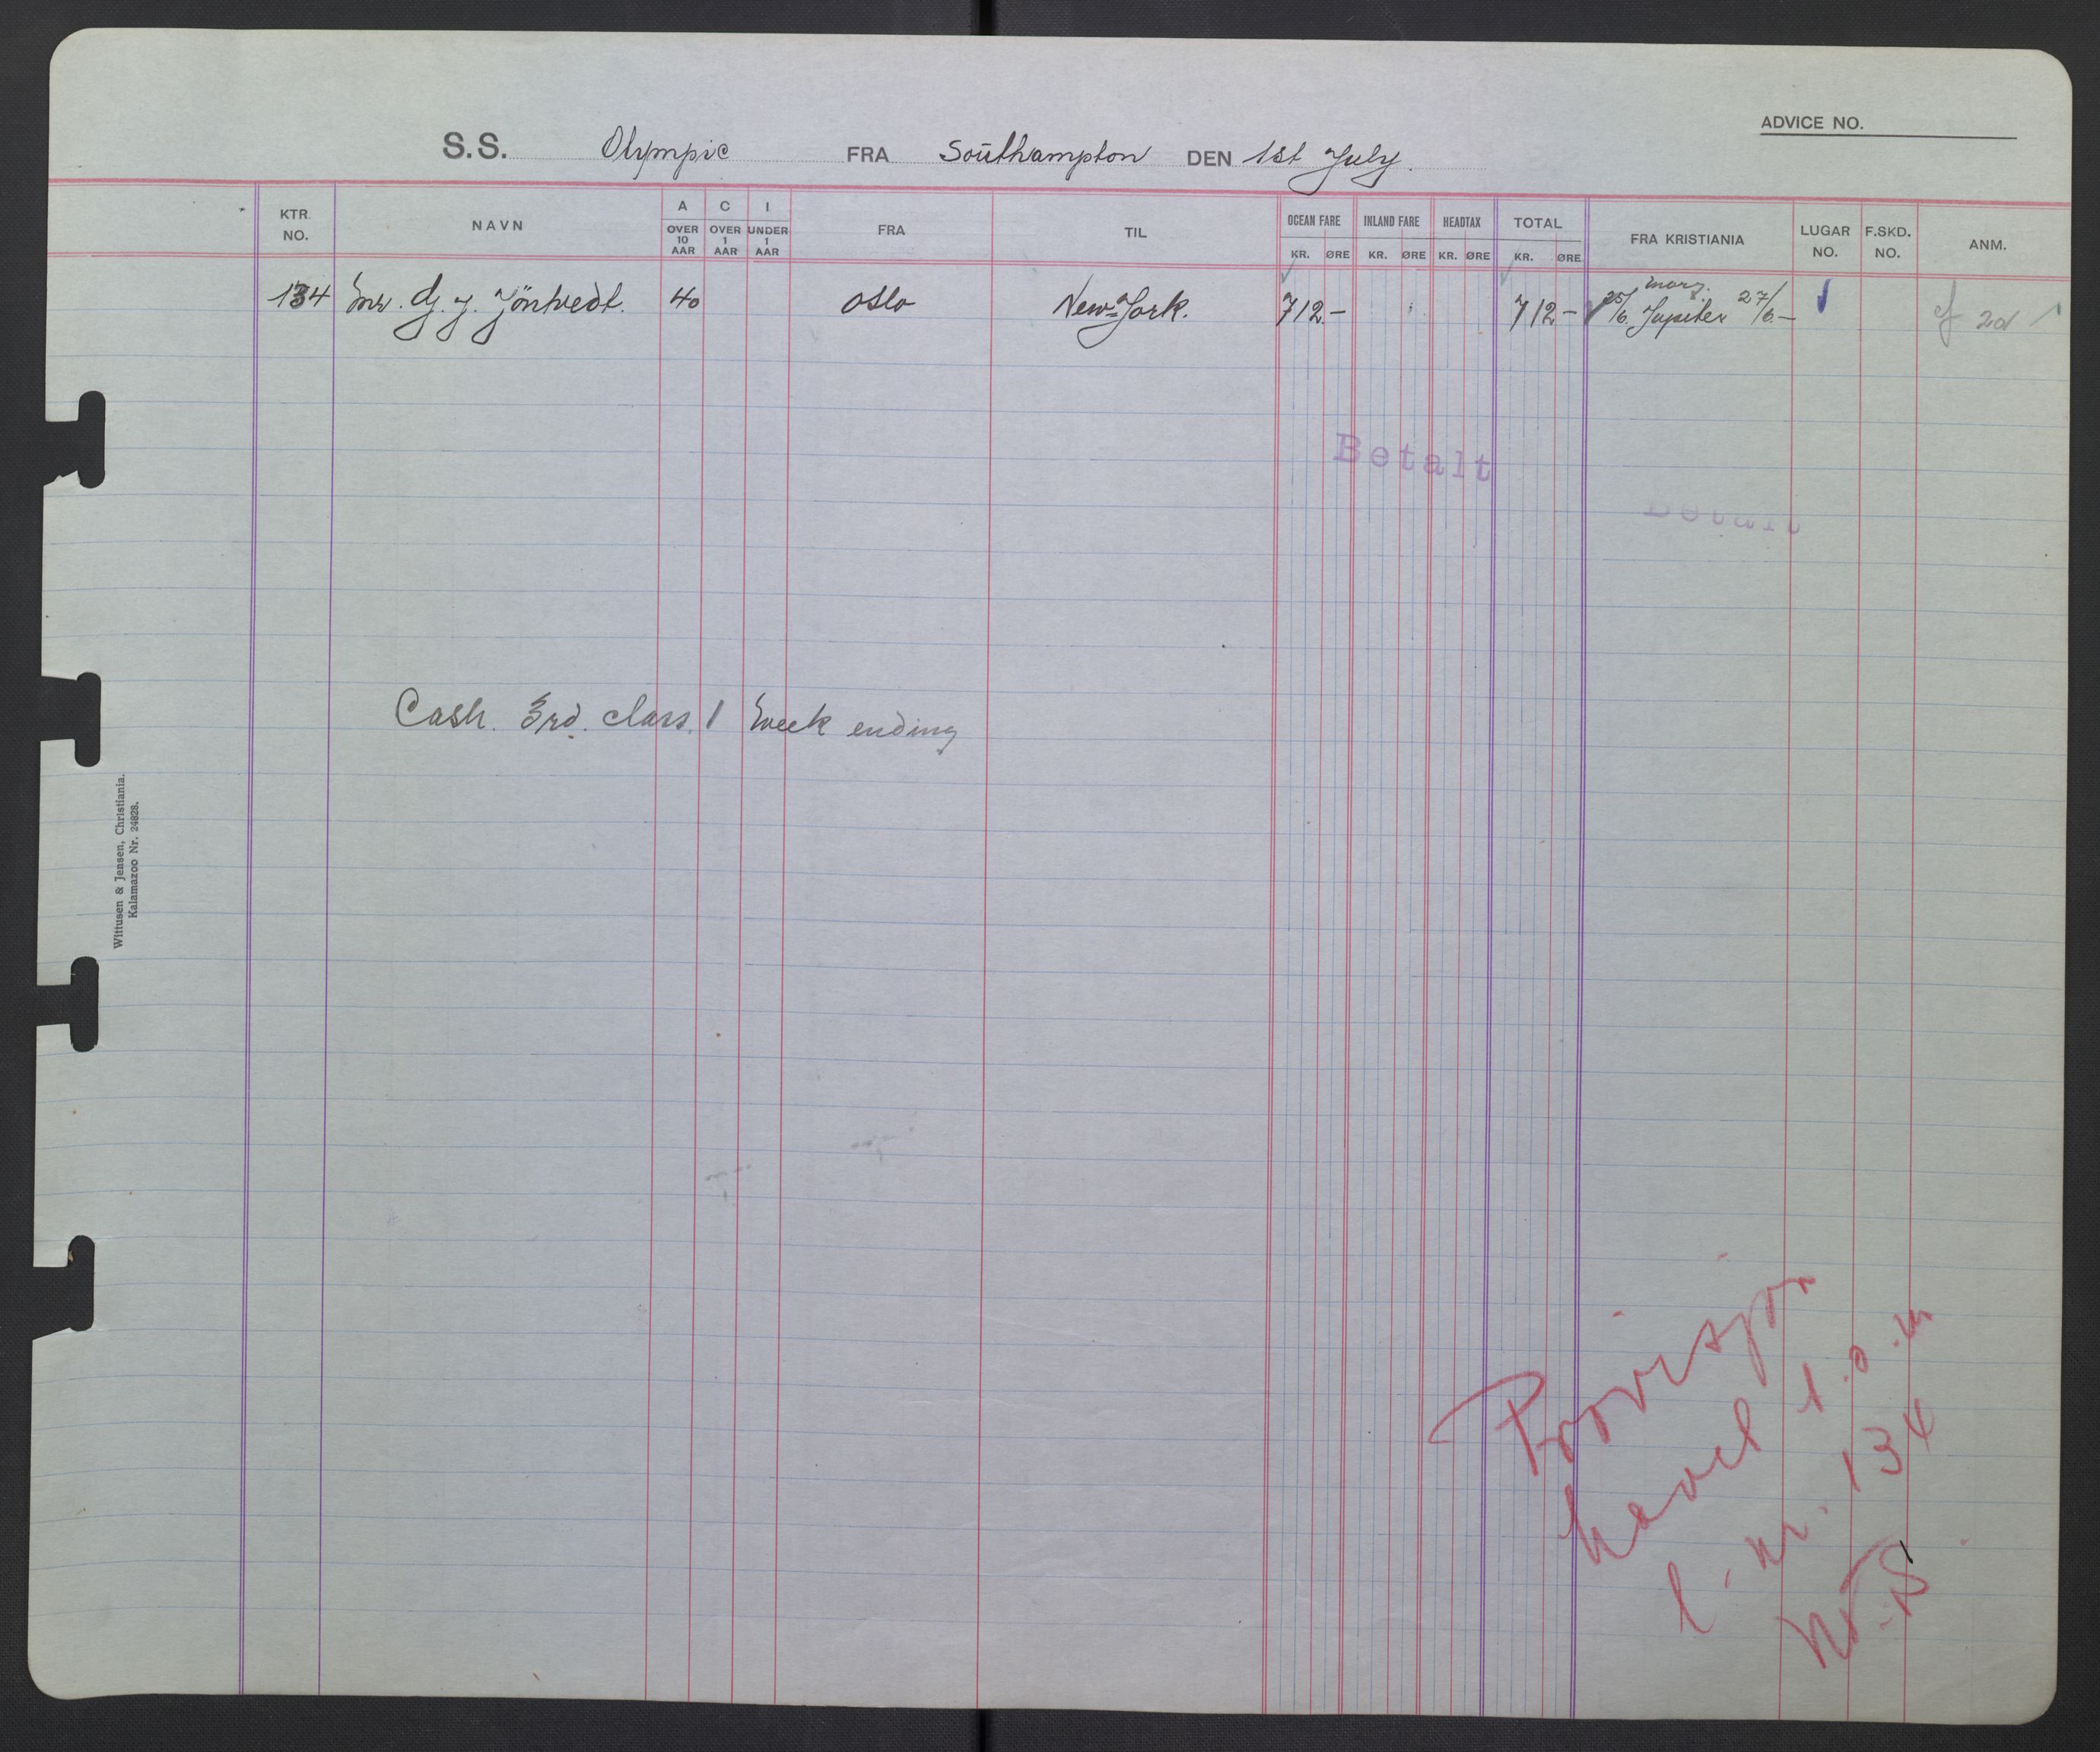 ADVICE NO.
S.S. Olympic FRA Southampton DEN 1st July.
KTR. NO. NAVN A OVER 10 AAR C OVER 1 AAR I UNDER 1 AAR FRA TIL OCEAN FARE KR. ØRE INLAND FARE KR. ØRE HEADTAX KR. ØRE TOTAL KR. ØRE FRA KRISTIANIA LUGAR NO. F.SKD. NO. ANM.
134 Mr. G. J. Jöntvedt. 40 Oslo New-York. 712.- 712- 25/6. Jupiter 27/6.-
Betalt
Betalt
Cash. 3rd. class. 1 Week ending
Wittusen & Jensen, Christiania.
Kalamazoo Nr. 24828.
Provisjon
hevet t.o.m
l. nr. 134